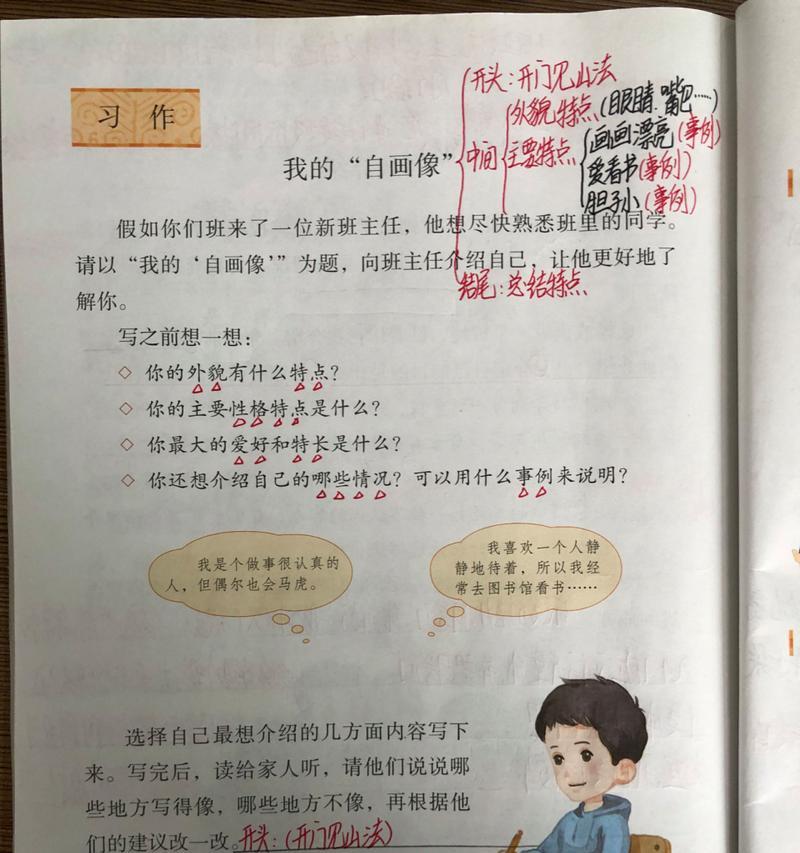 习 作
开头：开门见山法
外貌特点（眼睛、嘴巴……）
我的“自画像”
中间
主要特点
画画漂亮（事例）
爱看书（事例）
胆子小（事例）
结尾：总结特点
假如你们班来了一位新班主任，他想尽快熟悉班里的同学。
请以“我的‘自画像’”为题，向班主任介绍自己，让他更好地了
解你。
写之前想一想：
◇ 你的外貌有什么特点？
◇ 你的主要性格特点是什么？
◇ 你最大的爱好和特长是什么？
◇ 你还想介绍自己的哪些情况？可以用什么事例来说明？
我是个做事很认真的
人，但偶尔也会马虎。
我喜欢一个人静
静地待着，所以我经
常去图书馆看书……
选择自己最想介绍的几方面内容写下
来。写完后，读给家人听，请他们说说哪
些地方写得像，哪些地方不像，再根据他
们的建议改一改。开头：（开门见山法）